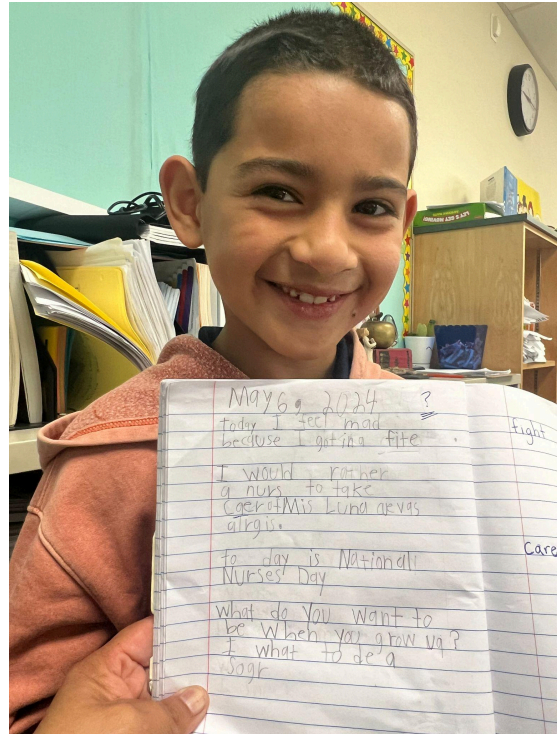 May 6, 2024 ?
today I feel mad
becluse I got in a fite
fight
I would rather
a nurs to take
Caer of Mis Luna aevas
alrgis.
care
to day is National
Nurses Day
What do you want to
be when you grow up?
I what to de a
Sogr